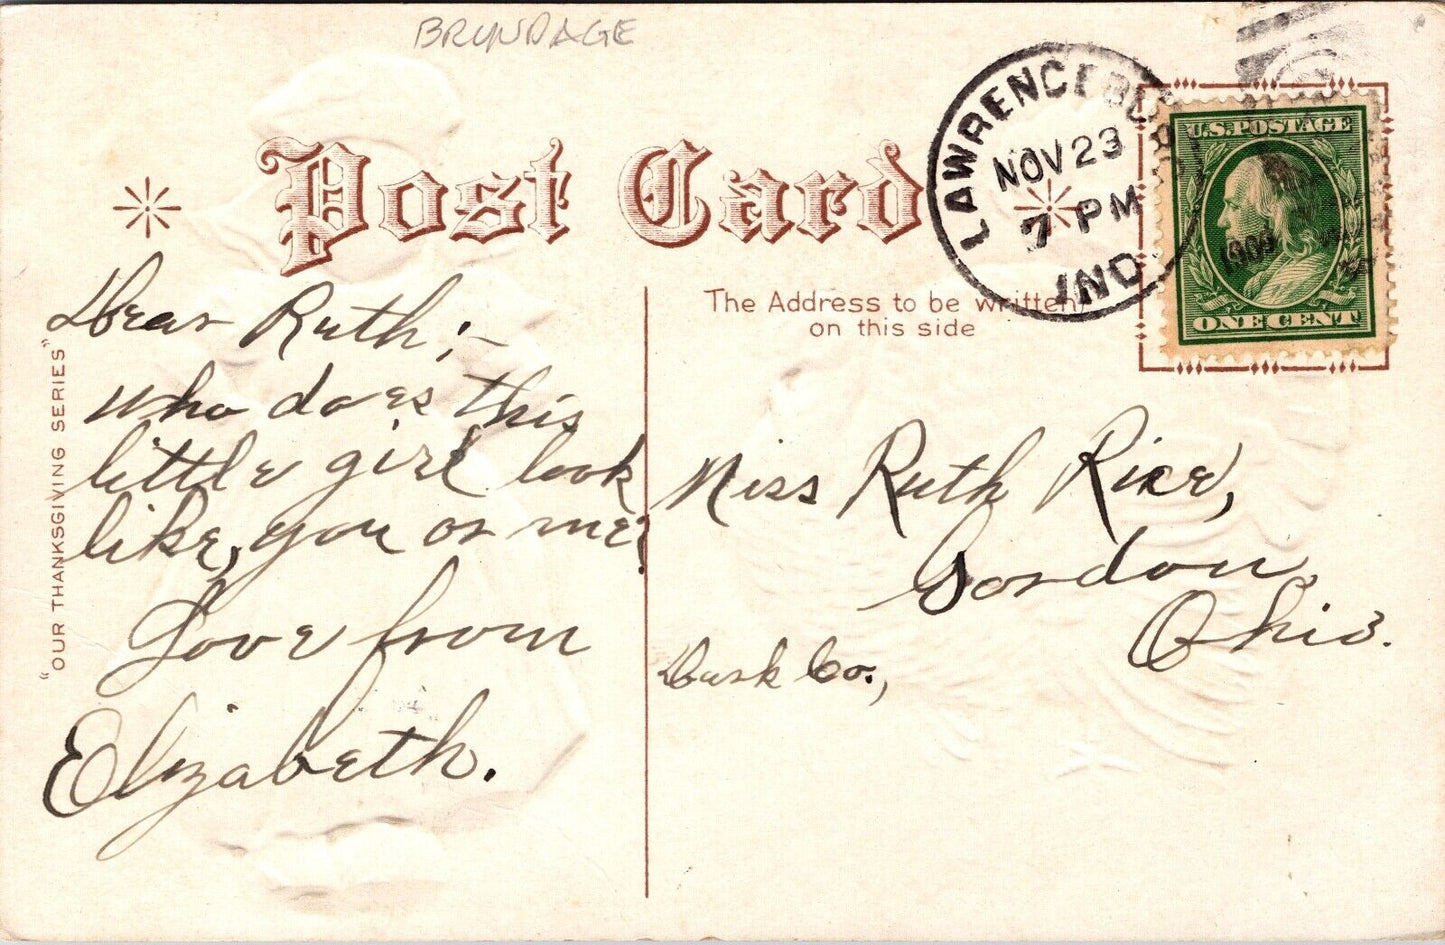 BRUNDAGE
Post Card
LAWRENCEBURG
NOV 23
7 PM
1909
IND
U.S. POSTAGE
ONE CENT
"OUR THANKSGIVING SERIES"
The Address to be written
on this side
Dear Ruth;–
who does this
little girl look
like, you or me?
Love from
Elizabeth.
Miss Ruth Rice,
Gordon,
Ohio.
Co.,